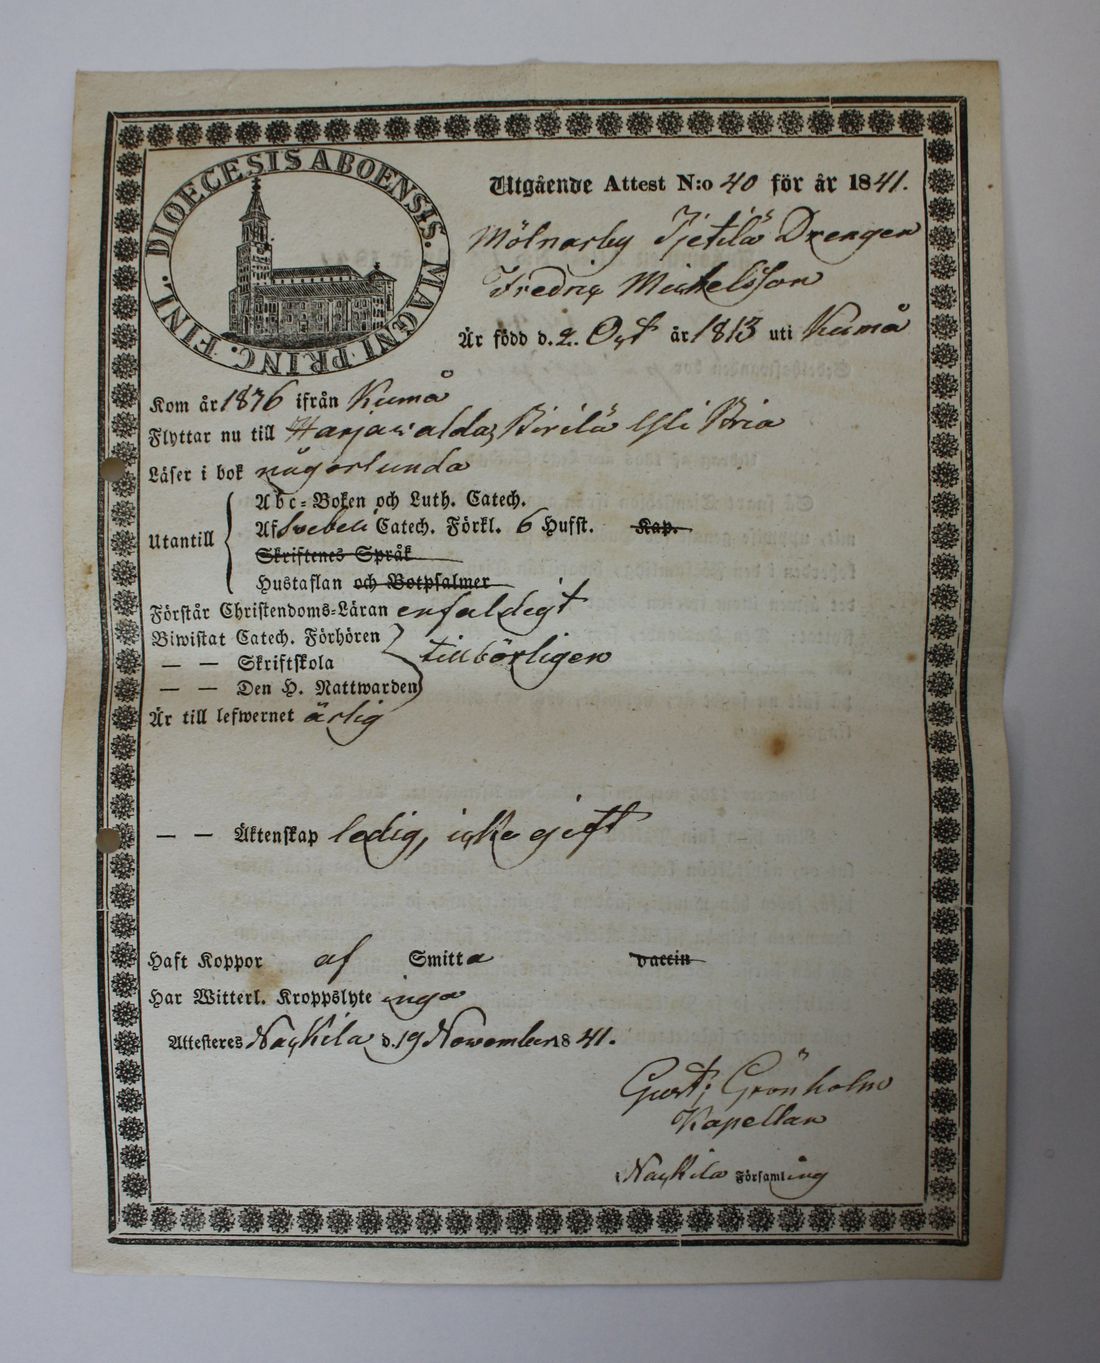 DIOECESIS ABOENSIS. MAGNI PRINC. FINL.
Utgående Attest N:o 40 för år 1841.
Mölnarby Tjetilä Drengen
Fredriq Mickelsson
Är född d. 2. Oct år 1813 uti Kumå
Kom år 1836 ifrån Kumå
Flyttar nu till Harjawalda,
Läser i bok någorlunda
Utantill
Abc-Boken och Luth. Catech.
Af Svebeli Catech. Förkl. 6 Hufst. Kap.
Skriftenes Språk
Hustaflan och Botpsalmer
Förstår Christendoms-Läran enfaldigt
Biwistat Catech. Förhören
— — Skriftskola tillbörligen
— — Den H. Nattwarden
Är till lefwernet ärlig
— — Äktenskap ledig, icke gift
Haft Koppor af Smitta vaccin
Har Witterl. Kroppslyte inga
Attesteres Nackila d. 19 November 1841.
Gust; Grönholm
Kapellan
Nackila Församling